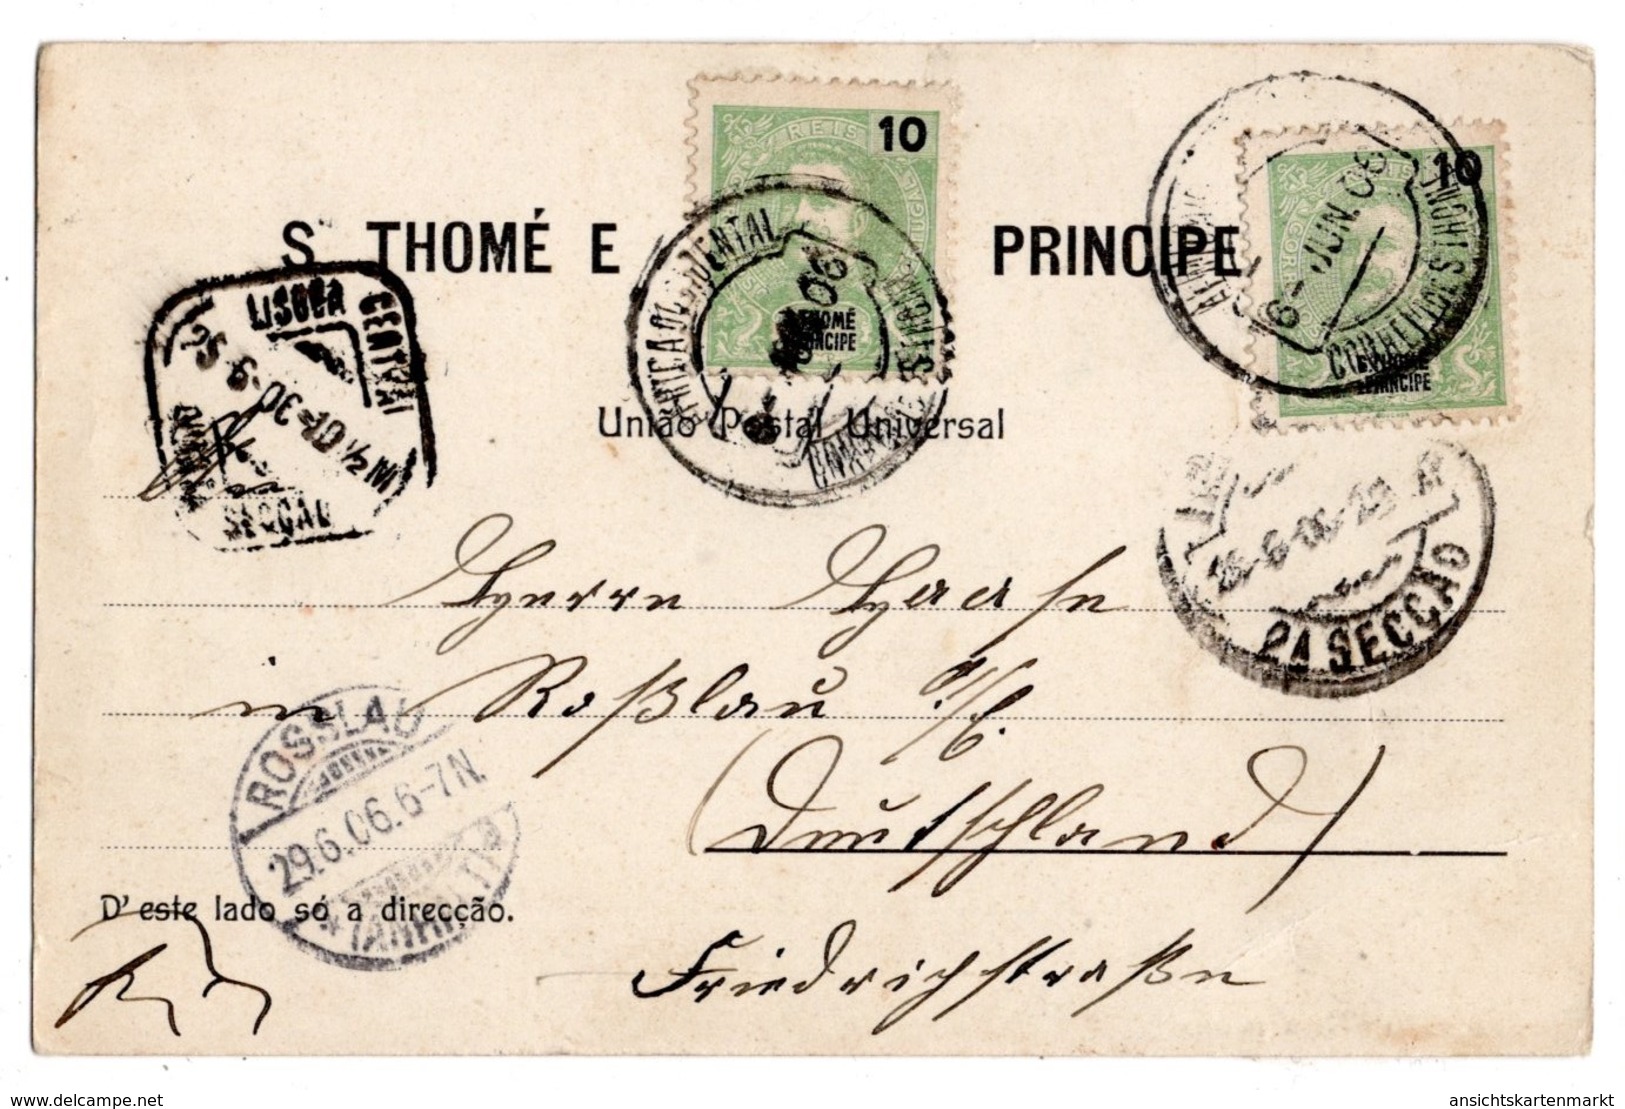 REIS
10
10
S. THOMÉ E PRINCIPE
AFRICA OCCIDENTAL
06
6-JUN.06
CORREIO DE S. THOMÉ
THOMÉ
PRINCIPE
PRINCIPE
LISBOA CENTRAL
25-6-06-10½M
SECÇÃO
União Postal Universal
An
Herrn Haase
2A SECÇÃO
in Roßlau a/E.
ROSSLAU
29.6.06.6-7N.
(ANHALT)
(Deutschland)
D'este lado só a direcção.
Friedrichstraße
delcampe.net
ansichtskartenmarkt